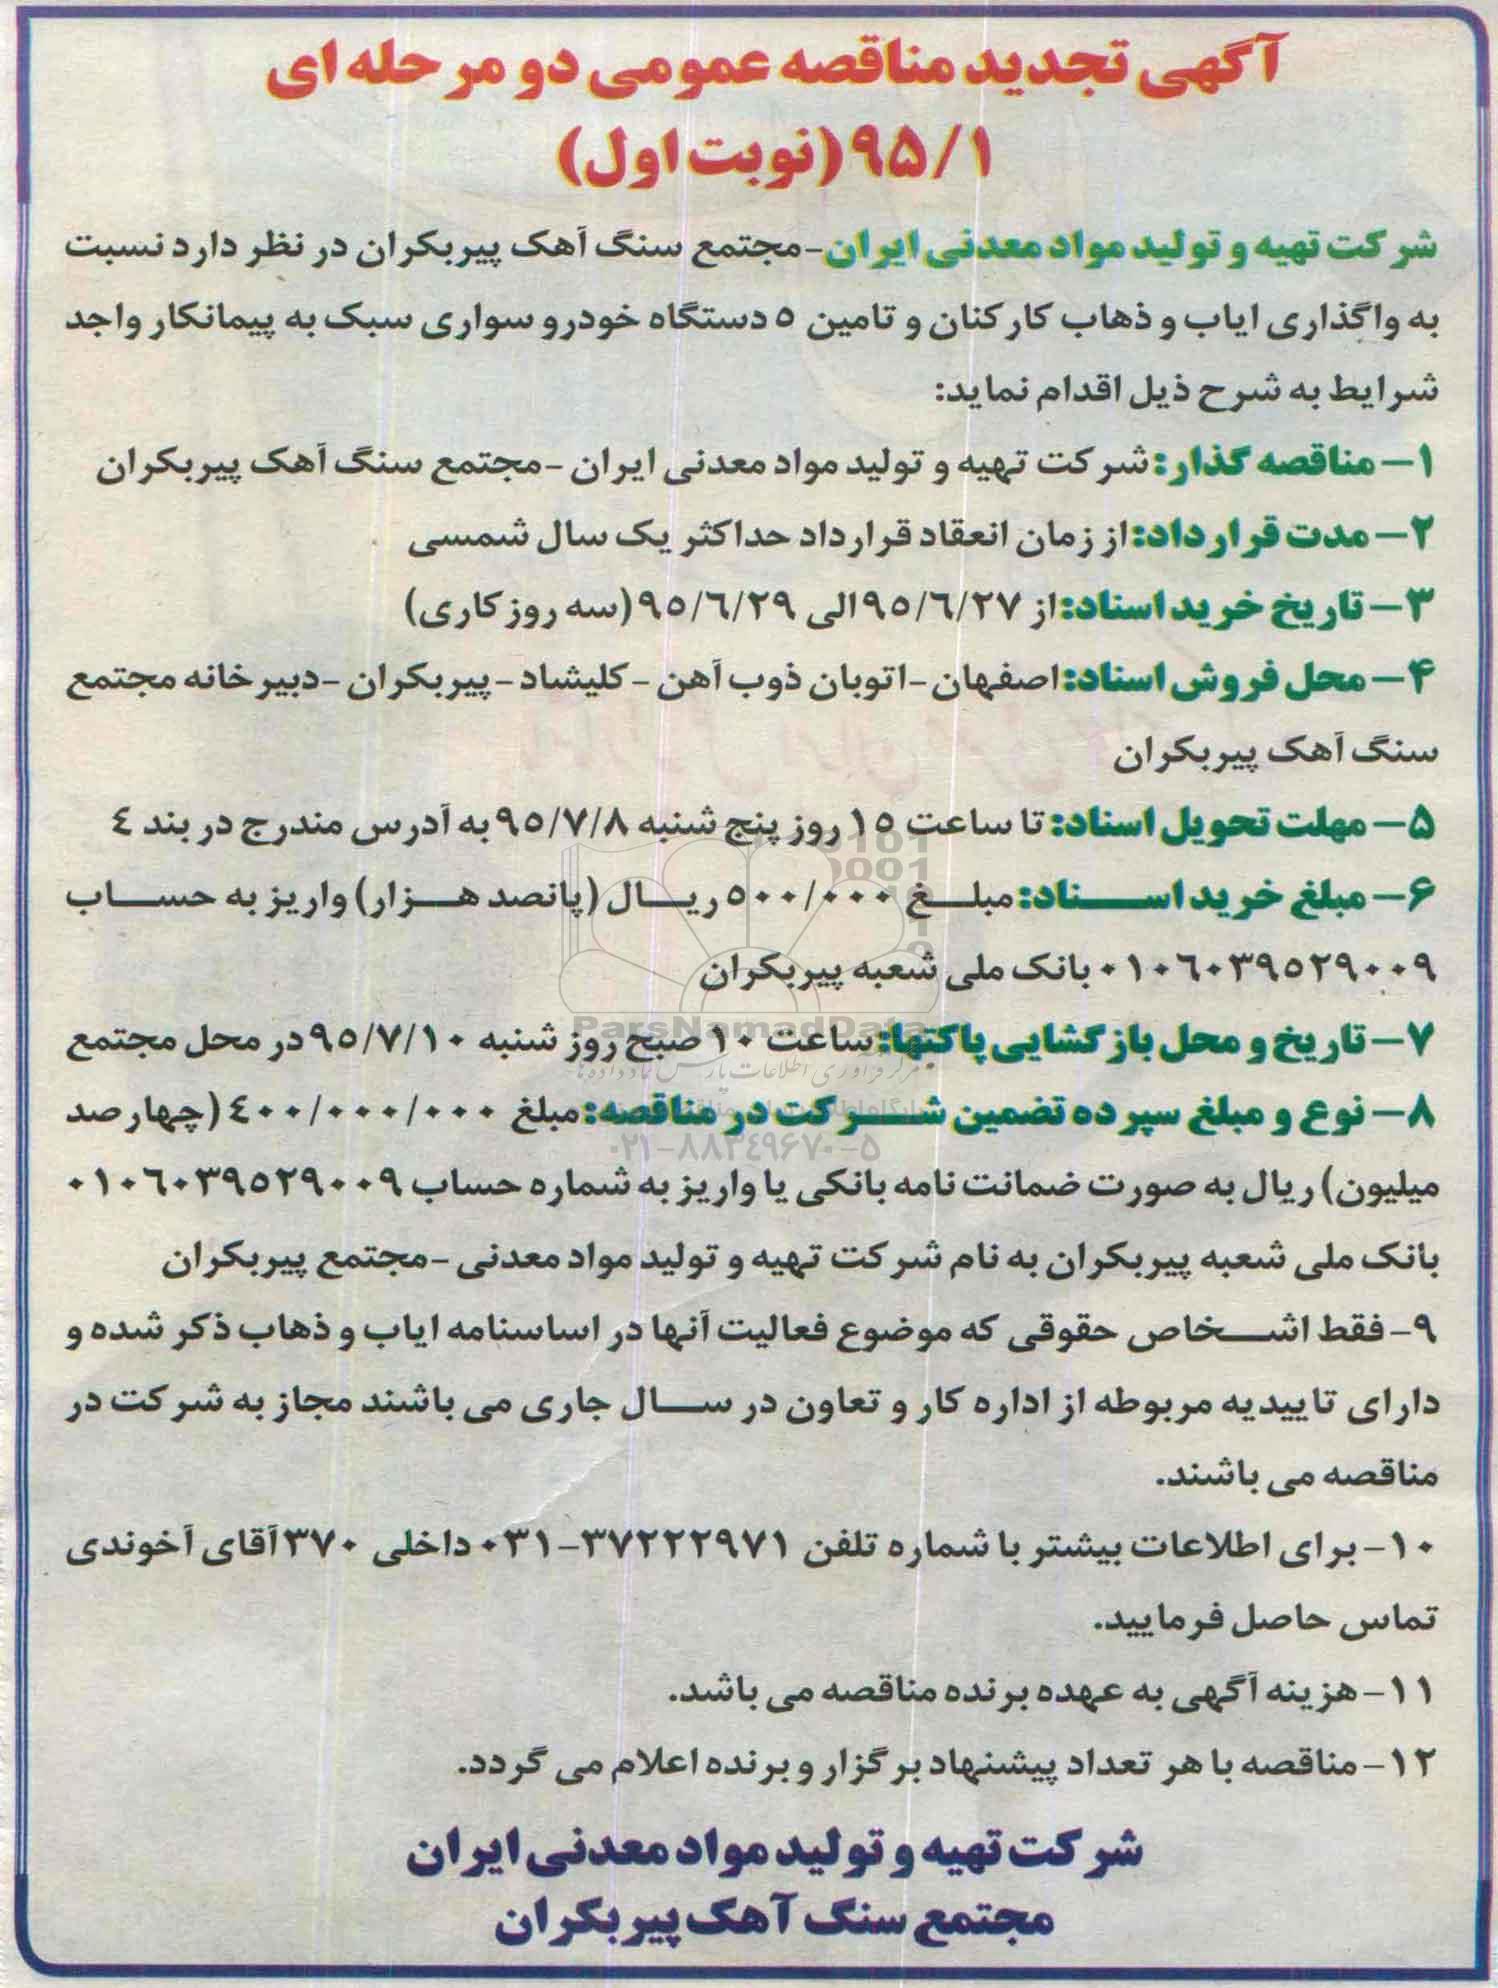 آگهی تجدید مناقصه عمومی دو مرحله ای
۹۵/۱ (نوبت اول)
شرکت تهیه و تولید مواد معدنی ایران-مجتمع سنگ آهک پیربکران در نظر دارد نسبت
به واگذاری ایاب و ذهاب کارکنان و تامین ۵ دستگاه خودرو سواری سبک به پیمانکار واجد
شرایط به شرح ذیل اقدام نماید:
۱- مناقصه گذار: شرکت تهیه و تولید مواد معدنی ایران -مجتمع سنگ آهک پیربکران
۲- مدت قرارداد: از زمان انعقاد قرارداد حداکثر یک سال شمسی
۳- تاریخ خرید اسناد: از ۹۵/۶/۲۷ الی ۹۵/۶/۲۹ (سه روز کاری)
۴- محل فروش اسناد: اصفهان-اتوبان ذوب آهن -کلیشاد-پیربکران -دبیرخانه مجتمع
سنگ آهک پیربکران
۵- مهلت تحویل اسناد: تا ساعت ۱۵ روز پنج شنبه ۹۵/۷/۸ به آدرس مندرج در بند ٤
۶- مبلغ خرید اسناد: مبلغ ۵۰۰/۰۰۰ ریال (پانصد هزار) واریز به حساب
۰۱۰۶۰۳۹۵۲۹۰۰۹ بانک ملی شعبه پیربکران
۷- تاریخ و محل بازگشایی پاکتها: ساعت ۱۰ صبح روز شنبه ۹۵/۷/۱۰ در محل مجتمع
۸- نوع و مبلغ سپرده تضمین شرکت در مناقصه: مبلغ ٤۰۰/۰۰۰/۰۰۰ (چهارصد
میلیون) ریال به صورت ضمانت نامه بانکی یا واریز به شماره حساب ۰۱۰۶۰۳۹۵۲۹۰۰۹
بانک ملی شعبه پیربکران به نام شرکت تهیه و تولید مواد معدنی -مجتمع پیربکران
۹- فقط اشخاص حقوقی که موضوع فعالیت آنها در اساسنامه ایاب و ذهاب ذکر شده و
دارای تاییدیه مربوطه از اداره کار و تعاون در سال جاری می باشند مجاز به شرکت در
مناقصه می باشند.
۱۰- برای اطلاعات بیشتر با شماره تلفن ۳۷۲۲۲۹۷۱-۰۳۱ داخلی ۳۷۰ آقای آخوندی
تماس حاصل فرمایید.
۱۱- هزینه آگهی به عهده برنده مناقصه می باشد.
۱۲- مناقصه با هر تعداد پیشنهاد برگزار و برنده اعلام می گردد.
شرکت تهیه و تولید مواد معدنی ایران
مجتمع سنگ آهک پیربکران
ParsNamadData
مرکز فرآوری اطلاعات پارس نماد داده ها
۰۲۱-۸۸۳٤۹۶۷۰-۵